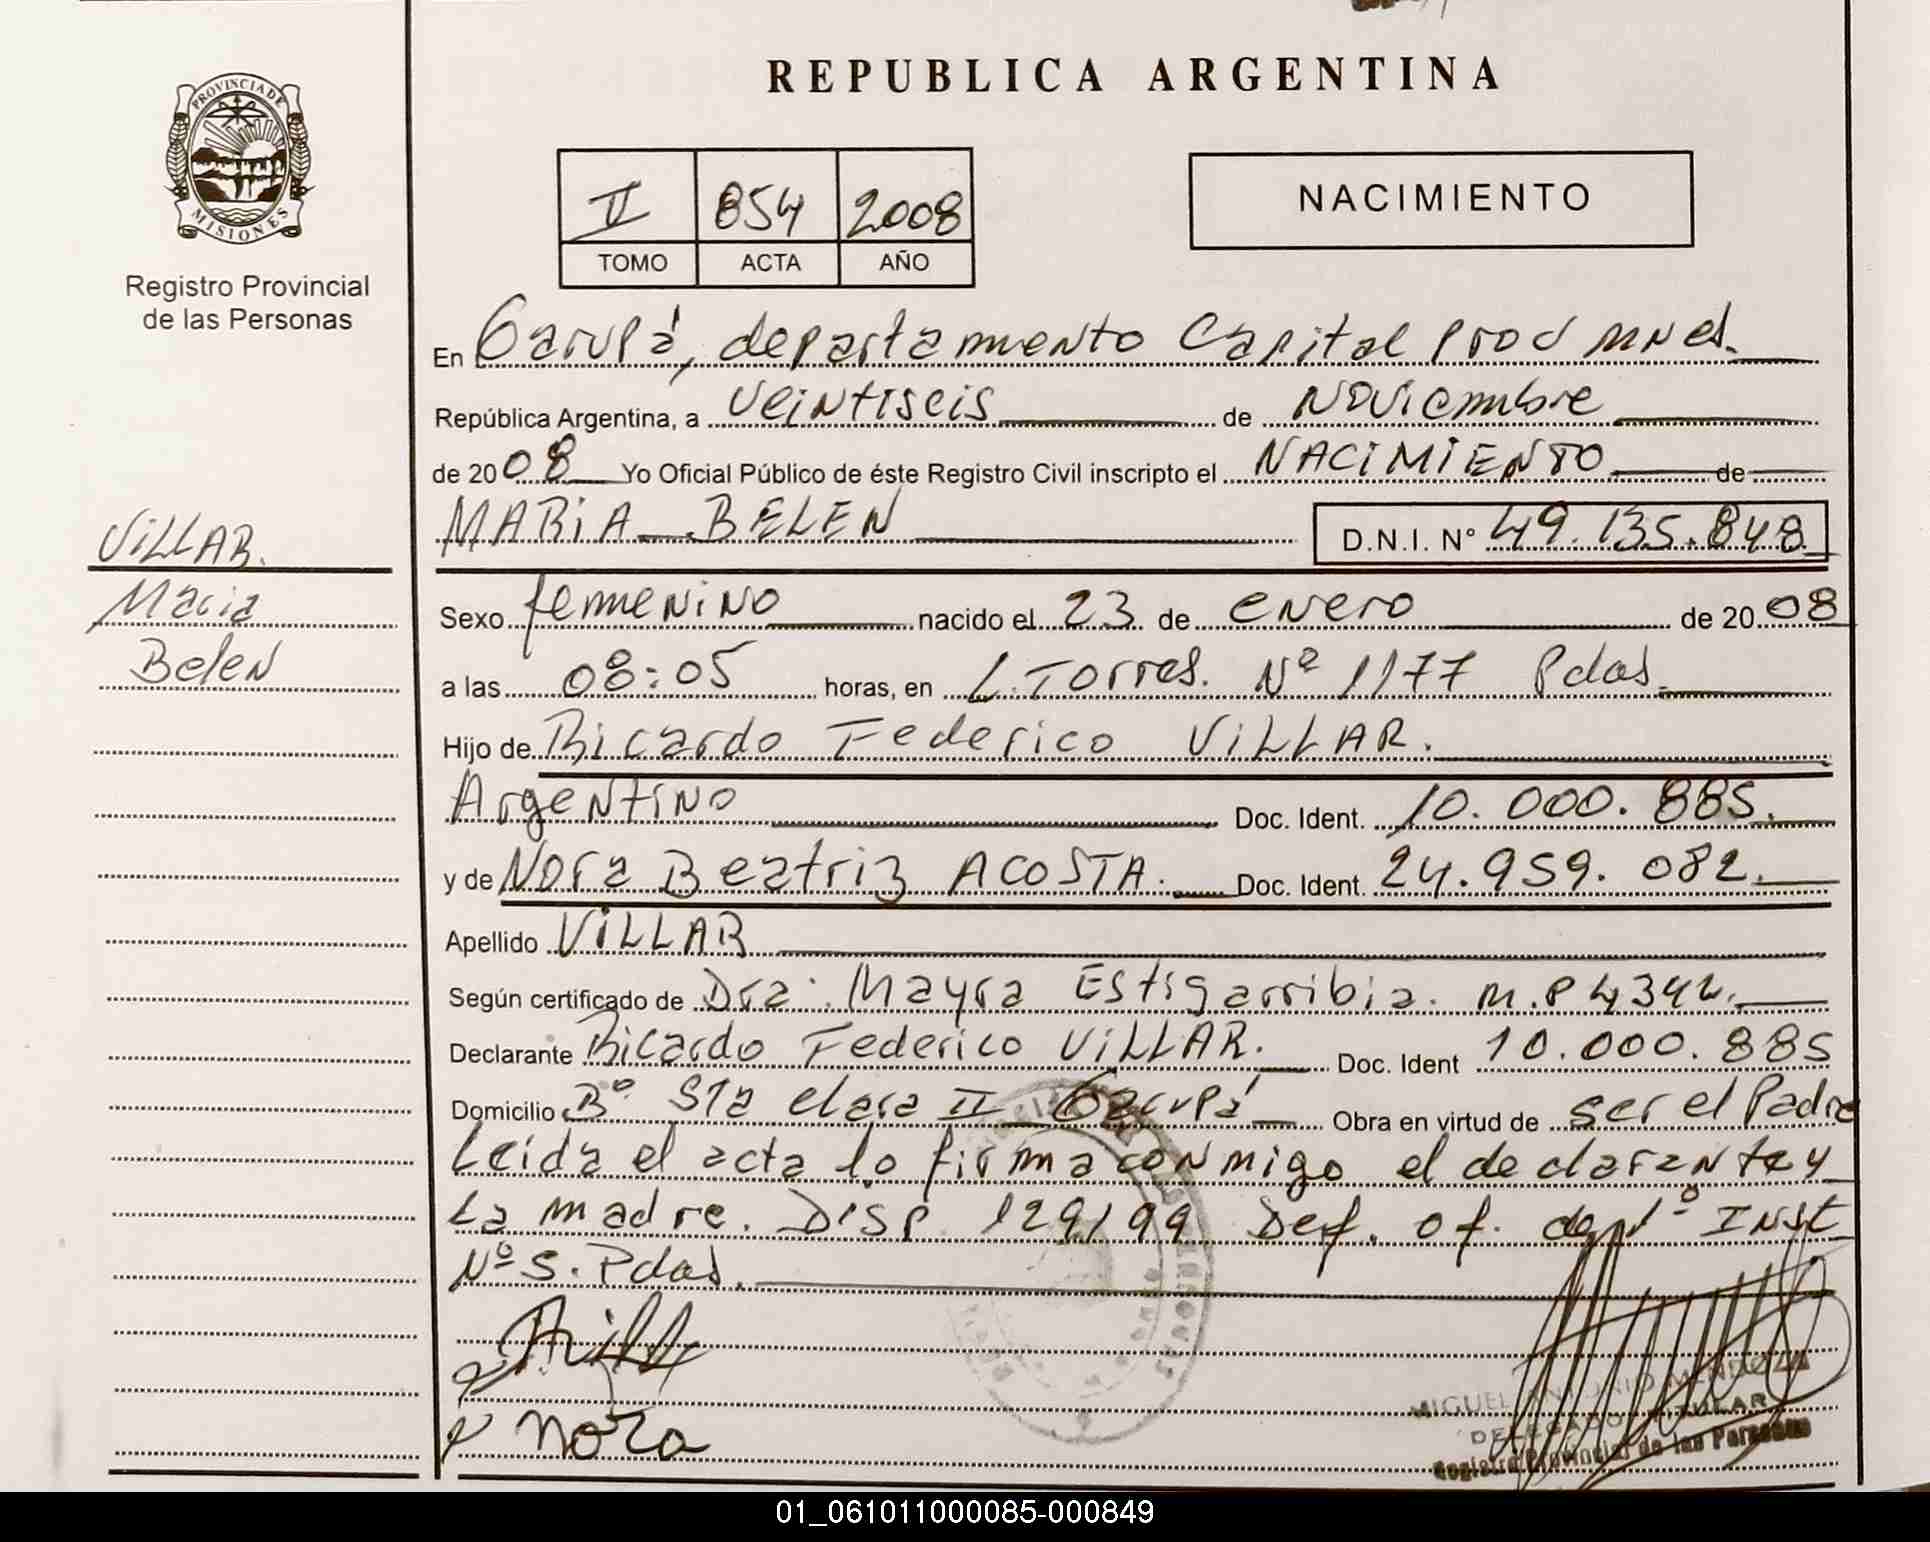 REPUBLICA ARGENTINA
PROVINCIA DE
MISIONES
Registro Provincial
de las Personas
II 854 2008
TOMO ACTA AÑO
NACIMIENTO
En Garupá, departamento Capital Prov Mnes.
República Argentina, a veintiseis de Noviembre
de 2008 Yo Oficial Público de éste Registro Civil inscripto el NACIMIENTO de
MARIA BELEN D.N.I. N° 49.135.848
VILLAR.
Maria
Belen
Sexo femenino nacido el 23 de enero de 2008
a las 08:05 horas, en L. Torres. Nº 1177 Pdas.
Hijo de Ricardo Federico VILLAR.
Argentino Doc. Ident. 10.000.885.
y de Nora Beatriz ACOSTA. Doc. Ident. 24.959.082.
Apellido VILLAR
Según certificado de Dra. Mayra Estigarribia. M.P 4342.
Declarante Ricardo Federico VILLAR. Doc. Ident 10.000.885
Domicilio Bº Sta clara II Garupá Obra en virtud de ser el Padre
Leida el acta lo firma conmigo el declarante y
La madre. Disp 129/99 Def. of. de 1º Inst
Nº 5. Pdas.
Nora
MIGUEL ANTONIO MENDOZA
DELEGADO TITULAR
Registro Provincial de las Personas
01_061011000085-000849